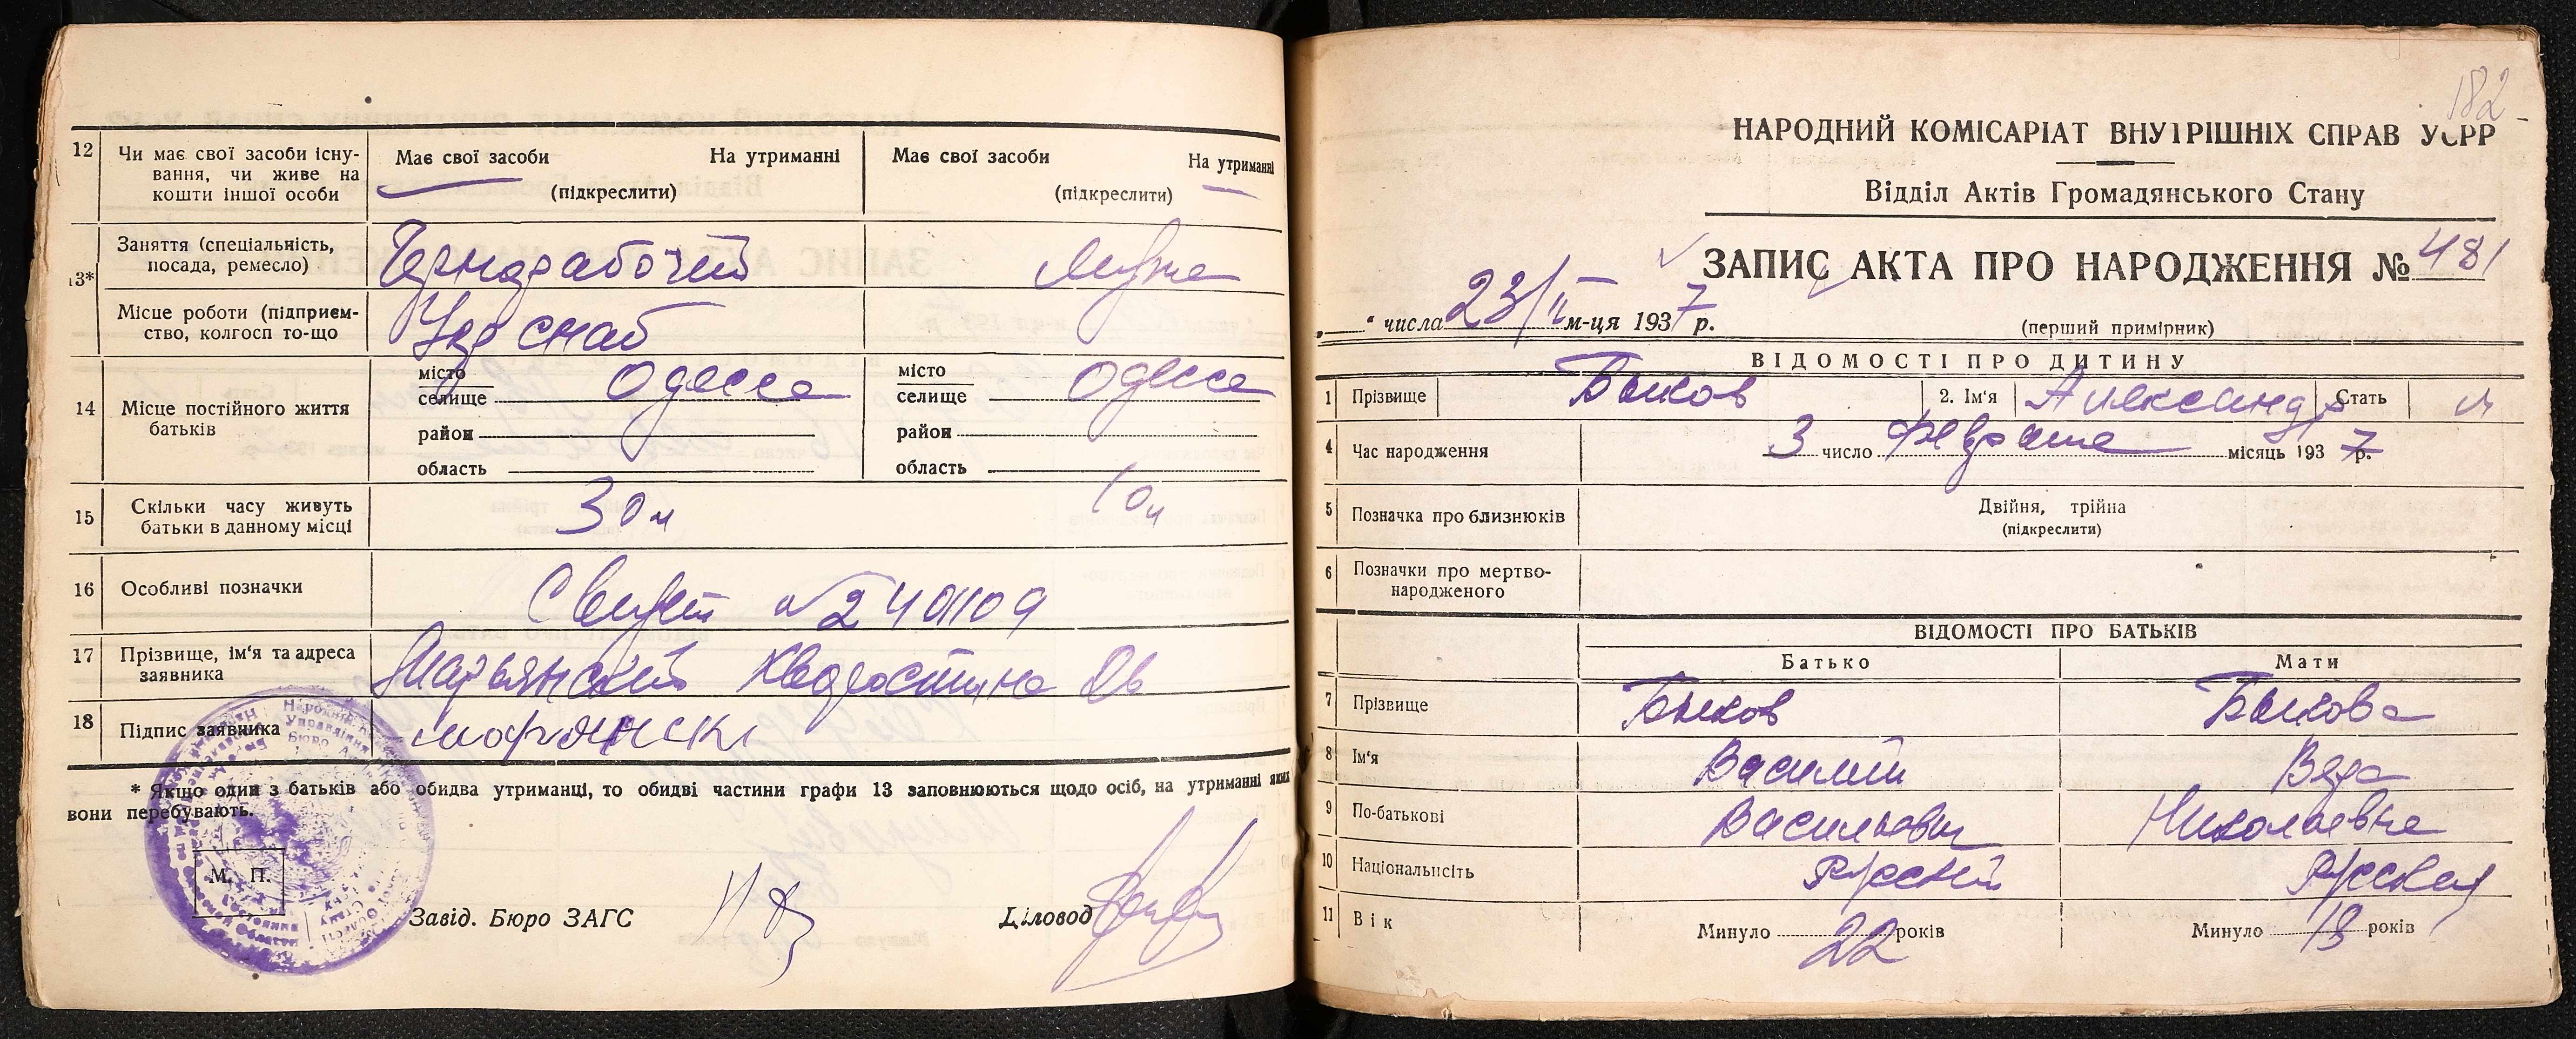 12
Чи має свої засоби існу-
вання, чи живе на
кошти іншої особи
Має свої засоби На утриманні
(підкреслити)
Має свої засоби На утриманні
(підкреслити)
13*
Заняття (спеціальність,
посада, ремесло)
Чернорабочий
Місце роботи (підприєм-
ство, колгосп то-що
14
Місце постійного життя
батьків
місто
селище Одесса
район
область
місто
селище Одесса
район
область
15
Скільки часу живуть
батьки в данному місці
30
10
16
Особливі позначки
№ 2401109
17
Прізвище, ім'я та адреса
заявника
Марьянский
18
Підпис заявника
* Якщо один з батьків або обидва утриманці, то обидві частини графи 13 заповнюються щодо осіб, на утриманні яких
вони перебувають.
М. П.
Завід. Бюро ЗАГС
Діловод
182
НАРОДНИЙ КОМІСАРІАТ ВНУТРІШНІХ СПРАВ УСРР
Відділ Актів Громадянського Стану
ЗАПИС АКТА ПРО НАРОДЖЕННЯ № 481
„ “ числа 23/II м-ця 1937 р.
(перший примірник)
ВІДОМОСТІ ПРО ДИТИНУ
1 Прізвище Быков 2. Ім'я Александр Стать м
4 Час народження 3 число Февраля місяць 1937 р.
5 Позначка про близнюків Двійня, трійна
(підкреслити)
6 Позначки про мертво-
народженого
ВІДОМОСТІ ПРО БАТЬКІВ
Батько Мати
7 Прізвище Быков Быкова
8 Ім'я Василий Вера
9 По-батькові Васильович Николаевна
10 Національність Русский Русская
11 Вік Минуло 22 років Минуло 19 років